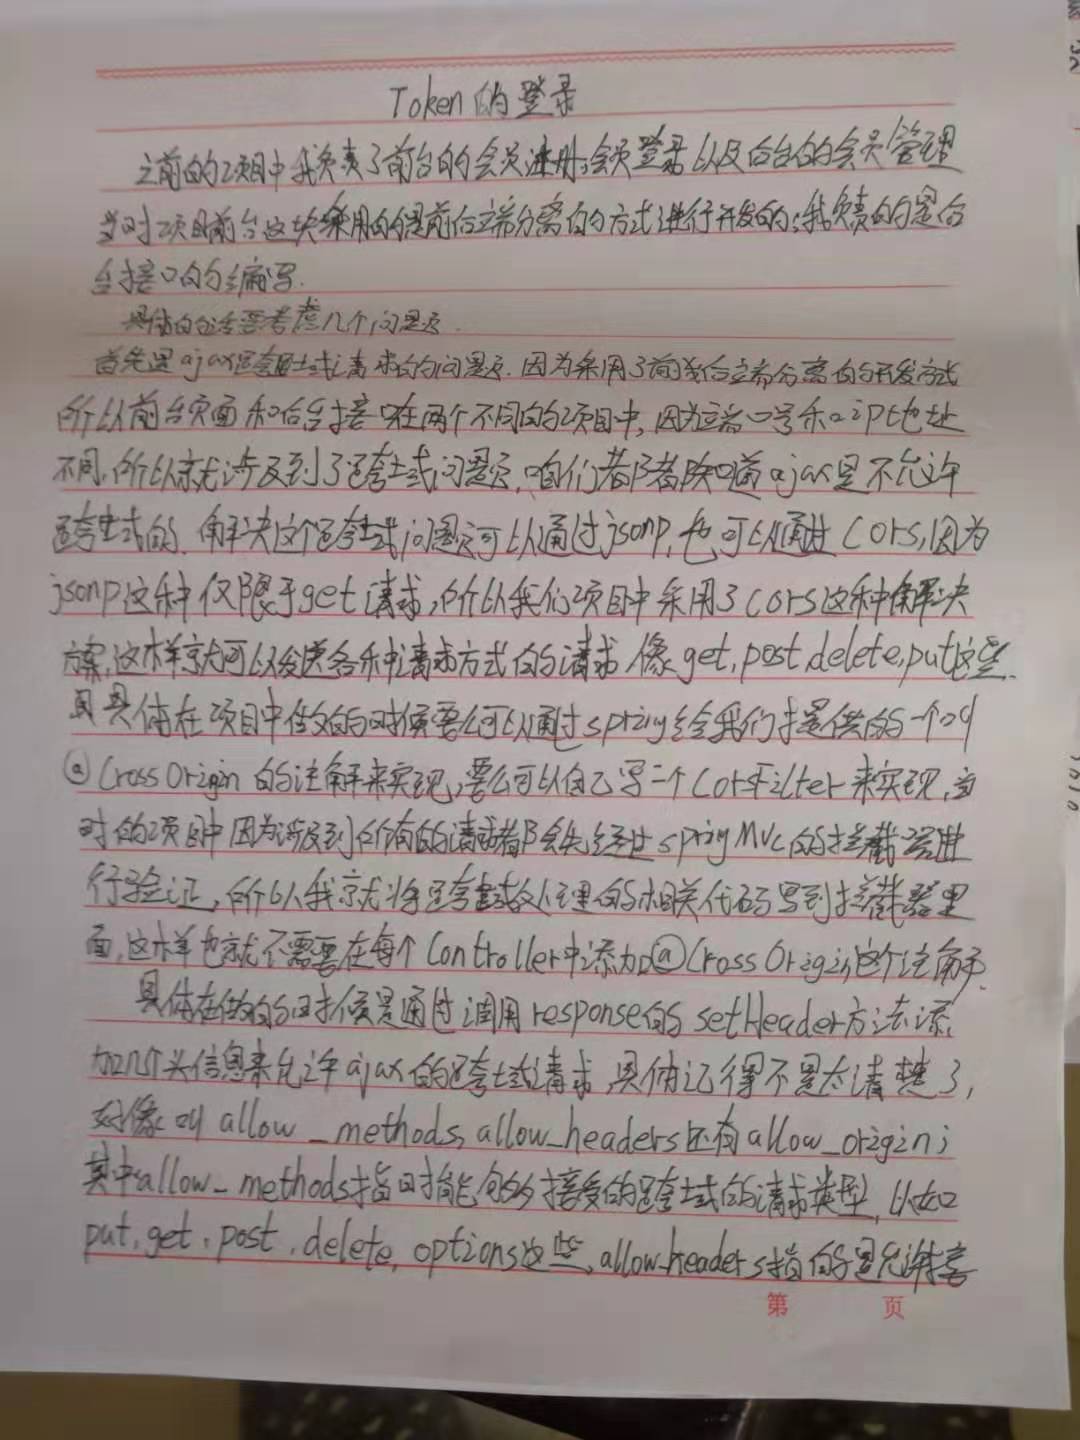 Token的登录
之前的项目中我负责了前台的会员注册,会员登录以及后台的会员管理
当时项目前台这块采用的是前后端分离的方式进行开发的;我负责的是后
台接口的编写.
具体的话要考虑几个问题.
首先是ajax跨域请求的问题.因为采用了前后端分离的开发方式
所以前台页面和后台接口在两个不同的项目中,因为端口号和ip地址
不同,所以就涉及到了跨域问题,咱们都知道ajax是不允许
跨域的.解决这个跨域问题可以通过jsonp,也可以通过Cors,因为
jsonp这种仅限于get请求,所以我们项目中采用了cors这种解决
方案,这样就可以发送各种请求方式的请求像get,post,delete,put这些.
具体在项目中做的时候要么可以通过spring给我们提供的一个叫
@CrossOrigin的注解来实现,要么可以自己写一个CorsFilter来实现,当
时的项目中因为涉及到所有的请求都会先经过springMvc的拦截器进
行验证,所以我就将跨域处理的相关代码写到拦截器里
面,这样也就不需要在每个Controller中添加@CrossOrigin这个注解.
具体在做的时候是通过调用response的setHeader方法添
加几个头信息来允许ajax的跨域请求,具体记得不是太清楚了,
好像叫allow_methods,allow_headers还有allow_origin;
其中allow_methods指的是能够接受的跨域的请求类型,比如
put,get,post,delete,options这些,allow_headers指的是允许接
第 页